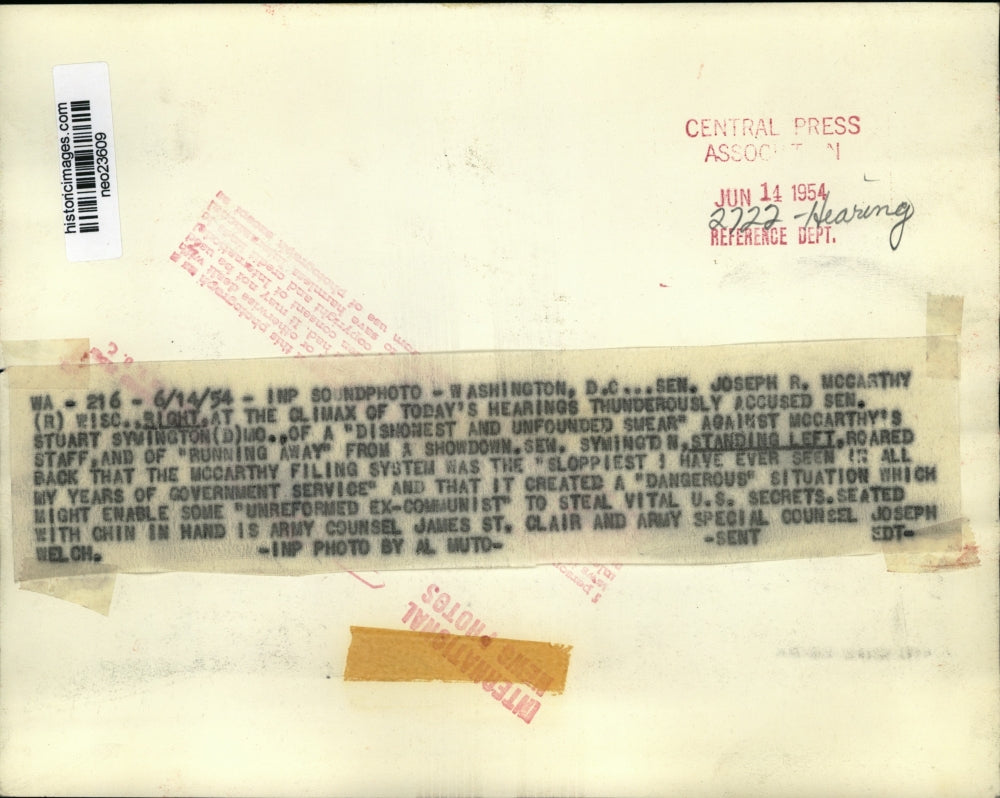 historicimages.com
neo23609
CENTRAL PRESS
JUN 14 1954
2722 - Hearing
REFERENCE DEPT.
WA - 216 - 6/14/54 - INP SOUNDPHOTO - WASHINGTON, D.C...SEN. JOSEPH R. MCCARTHY
(R) WISC.,RIGHT,AT THE CLIMAX OF TODAY'S HEARINGS THUNDEROUSLY ACCUSED SEN.
STUART SYMINGTON(D)MO.,OF A "DISHONEST AND UNFOUNDED SMEAR" AGAINST MCCARTHY'S
STAFF,AND OF "RUNNING AWAY" FROM A SHOWDOWN.SEN. SYMINGTON,STANDING LEFT,ROARED
BACK THAT THE MCCARTHY FILING SYSTEM WAS THE "SLOPPIEST I HAVE EVER SEEN IN ALL
MY YEARS OF GOVERNMENT SERVICE" AND THAT IT CREATED A "DANGEROUS" SITUATION WHICH
MIGHT ENABLE SOME "UNREFORMED EX-COMMUNIST" TO STEAL VITAL U.S. SECRETS.SEATED
WITH CHIN IN HAND IS ARMY COUNSEL JAMES ST. CLAIR AND ARMY SPECIAL COUNSEL JOSEPH
WELCH. -INP PHOTO BY AL MUTO- -SENT EDT-
INTERNATIONAL
NEWS PHOTOS